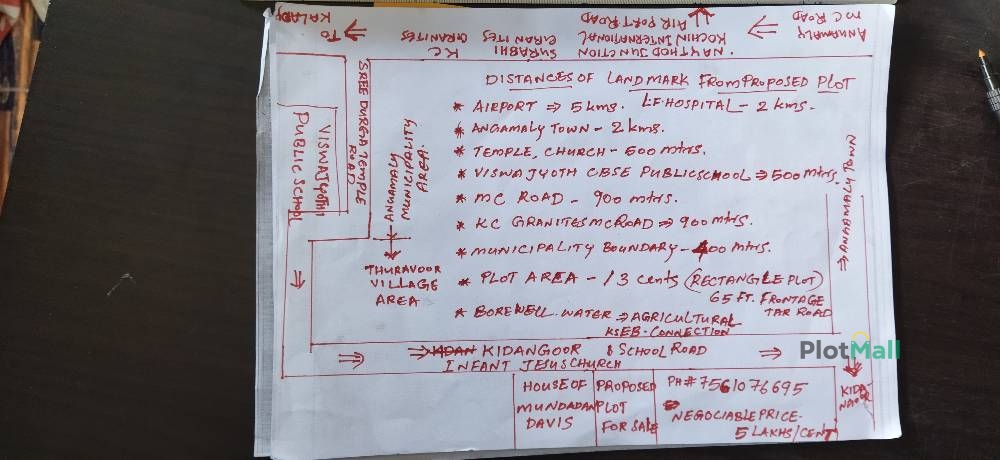 ANGAMALY
MC ROAD
AIR PORT ROAD
KOCHIN INTERNATIONAL
NAYTHOD JUNCTION
SURABHI
GRANITES
KC
GRANITES
TO
KALADY
DISTANCES OF LANDMARK FROM PROPOSED PLOT
* AIRPORT ⇒ 5 kms. L.F. HOSPITAL - 2 kms.
* ANGAMALY TOWN - 2 kms.
* TEMPLE, CHURCH - 600 mtrs.
* VISWAJYOTH CBSE PUBLIC SCHOOL ⇒ 500 mtrs.
* MC ROAD - 900 mtrs.
* KC GRANITES MC ROAD ⇒ 900 mtrs.
* MUNICIPALITY BOUNDARY - 400 mtrs.
* PLOT AREA - 13 cents (RECTANGLE PLOT)
65 FT. FRONTAGE
TAR ROAD
* BOREWELL WATER ⇒ AGRICULTURAL
KSEB-CONNECTION
SREE DURGA TEMPLE
ROAD
VISWAJYOTHI
PUBLIC SCHOOL
ANGAMALY
MUNICIPALITY
AREA.
THURAVOOR
VILLAGE
AREA
⇒ ANGAMALY TOWN
⇒ KIDAN KIDANGOOR & SCHOOL ROAD
INFANT JESUS CHURCH
HOUSE OF
MUNDADAN
DAVIS
PROPOSED
PLOT
FOR SALE
PH# 7561076695
NEGOCIABLE PRICE-
5 LAKHS/CENT
PlotMall